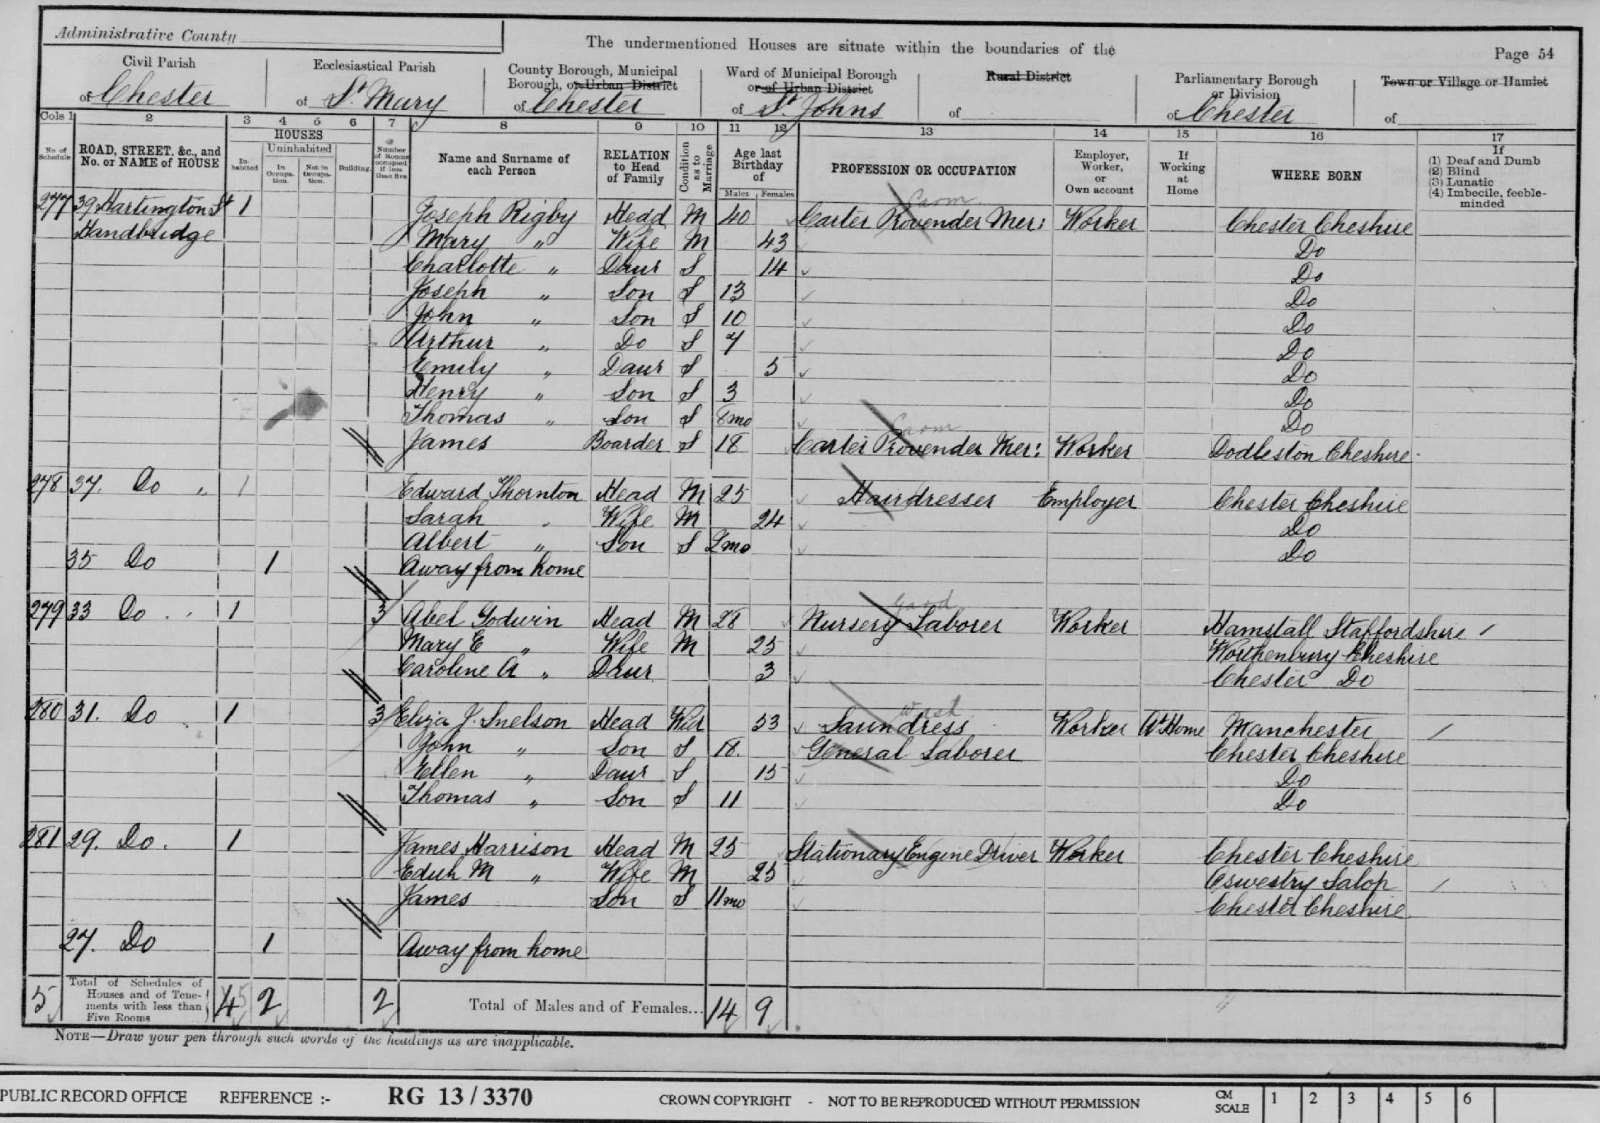 Administrative County
The undermentioned Houses are situate within the boundaries of the
Page 54
Civil Parish of Chester
Ecclesiastical Parish of St Mary
County Borough, Municipal Borough, or Urban District of Chester
Ward of Municipal Borough or of Urban District of St Johns
Rural District of
Parliamentary Borough or Division of Chester
Town or Village or Hamlet of
Cols 1 2 3 4 5 6 7 8 9 10 11 12 13 14 15 16 17
No. of Schedule
ROAD, STREET, &c., and No. or NAME of HOUSE
HOUSES
Inhabited
Uninhabited
In Occupation.
Not in Occupation.
Building.
Number of Rooms occupied if less than five
Name and Surname of each Person
RELATION to Head of Family
Condition as to Marriage
Age last Birthday of
Males Females
PROFESSION OR OCCUPATION
Employer, Worker, or Own account
If Working at Home
WHERE BORN
If
(1) Deaf and Dumb
(2) Blind
(3) Lunatic
(4) Imbecile, feeble-minded
277 39 Hartington St 1 Joseph Rigby Head M 40 Carter Provender Mer: Worker Chester Cheshire
Handbridge Mary " Wife M 43 Do
Charlotte " Daur S 14 Do
Joseph " Son S 13 Do
John " Son S 10 Do
Arthur " Do S 7 Do
Emily " Daur S 5 Do
Henry " Son S 3 Do
Thomas " Son S 8mo Do
James Boarder S 18 Carter Provender Mer: Worker Dodleston Cheshire
278 37. Do " 1 Edward Thornton Head M 25 Hairdresser Employer Chester Cheshire
Sarah " Wife M 24 Do
Albert " Son S 2mo Do
35 Do 1 Away from home
279 33 Do 1 3 Abel Godwin Head M 28 Nursery Laborer Worker Hamstall Staffordshire
Mary E " Wife M 25 Worthenbury Cheshire
Caroline A " Daur 3 Chester Do
280 31. Do 1 3 Eliza J. Snelson Head Wid 53 Laundress Wash Worker At Home Manchester
John " Son S 18 General Laborer Chester Cheshire
Ellen " Daur S 15 Do
Thomas " Son S 11 Do
281 29. Do. 1 James Harrison Head M 25 Stationary Engine Driver Worker Chester Cheshire
Edith M " Wife M 25 Oswestry Salop
James Son S 11mo Chester Cheshire
27. Do 1 Away from home
5 Total of Schedules of Houses and of Tenements with less than Five Rooms 4 5 2 2 Total of Males and of Females... 14 9
NOTE—Draw your pen through such words of the headings as are inapplicable.
PUBLIC RECORD OFFICE REFERENCE :- RG 13 / 3370 CROWN COPYRIGHT - NOT TO BE REPRODUCED WITHOUT PERMISSION CM SCALE 1 2 3 4 5 6